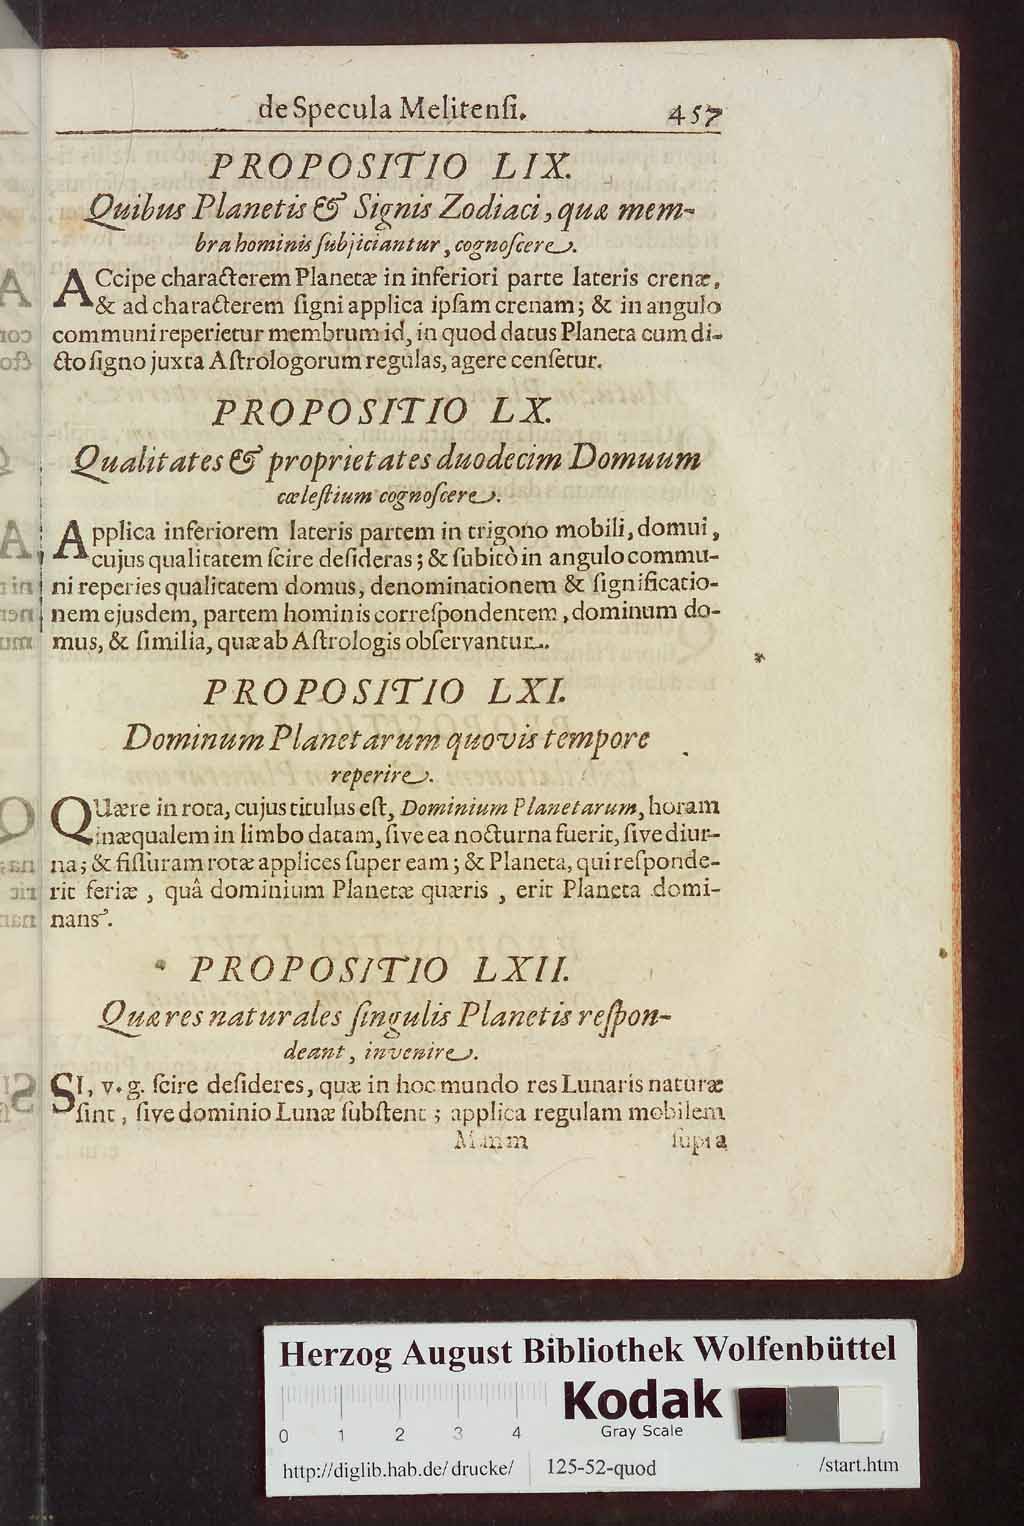 de Specula Melitenſi. 457
PROPOSITIO LIX.
Quibus Planetis & Signis Zodiaci, quæ mem-
bra hominis ſubjiciantur, cognoſcere.
ACcipe characterem Planetæ in inferiori parte lateris crenæ,
& ad characterem ſigni applica ipſam crenam; & in angulo
communi reperietur membrum id, in quod datus Planeta cum di-
cto ſigno juxta Aſtrologorum regulas, agere cenſetur.
PROPOSITIO LX.
Qualitates & proprietates duodecim Domuum
cæleſtium cognoſcere.
Applica inferiorem lateris partem in trigono mobili, domui,
cujus qualitatem ſcire deſideras; & ſubitò in angulo commu-
ni reperies qualitatem domus, denominationem & ſignificatio-
nem ejusdem, partem hominis correſpondentem, dominum do-
mus, & ſimilia, quæ ab Aſtrologis obſervantur.
PROPOSITIO LXI.
Dominum Planetarum quovis tempore
reperire.
QUære in rota, cujus titulus eſt, Dominium Planetarum, horam
inæqualem in limbo datam, ſive ea nocturna fuerit, ſive diur-
na; & fiſſuram rotæ applices ſuper eam; & Planeta, qui reſponde-
rit feriæ, quâ dominium Planetæ quæris, erit Planeta domi-
nans.
PROPOSITIO LXII.
Quæ res naturales ſingulis Planetis reſpon-
deant, invenire.
SI, v. g. ſcire deſideres, quæ in hoc mundo res Lunaris naturæ
ſint, ſive dominio Lunæ ſubſtent; applica regulam mobilem
Mmm ſupra
Herzog August Bibliothek Wolfenbüttel
Kodak
Gray Scale
0 1 2 3 4
http://diglib.hab.de/drucke/ 125-52-quod /start.htm